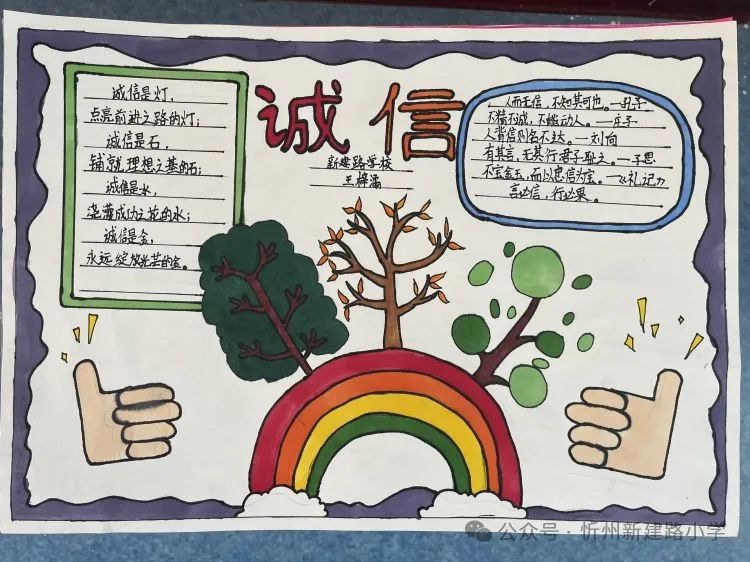 诚信
新建路学校
王梓涵
诚信是灯，
点亮前进之路的灯；
诚信是石，
铺就理想之基的石；
诚信是水，
浇灌成功之花的水；
诚信是金，
永远绽放光芒的金。
人而无信，不知其可也。—孔子
不精不诚，不能动人。—庄子
人背信则名不达。—刘向
有其言，无其行，君子耻之。—子思
不宝金玉，而以忠信为宝。—《礼记》
言必信，行必果。
公众号·忻州新建路小学